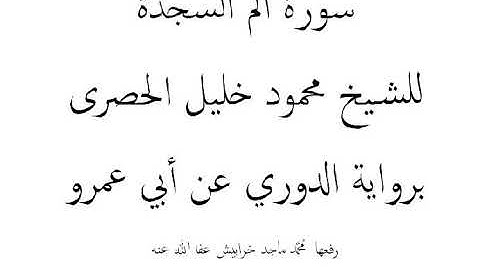 سورة الم السجدة
للشيخ محمود خليل الحصرى
برواية الدوري عن أبي عمرو
رفعها محمد ماجد خرابيش عفا الله عنه